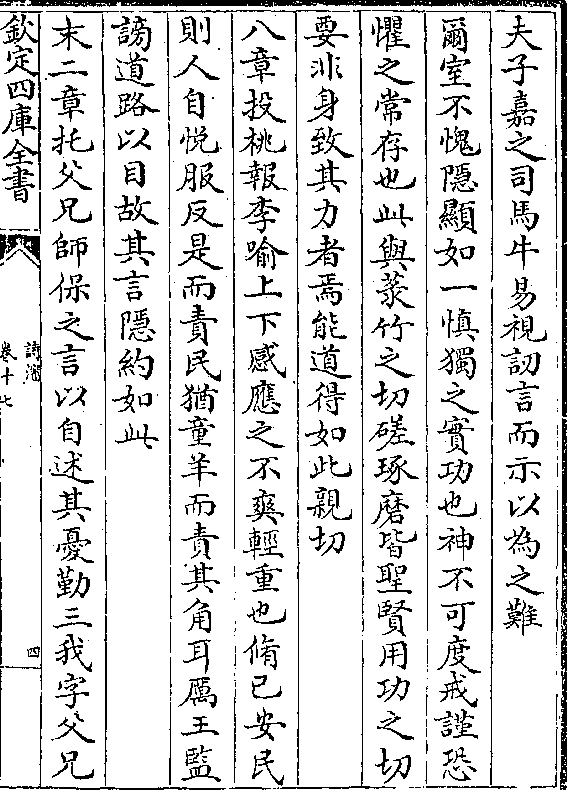 夫子嘉之司馬牛易視訒言而示以為之難
爾室不愧隱顯如一慎獨之實功也神不可度戒謹恐
懼之常存也此與菉竹之切磋琢磨皆聖賢用功之切
要非身致其力者焉能道得如此親切
八章投桃報李喻上下感應之不爽輕重也脩已安民
則人自悅服反是而責民猶童羊而責其角耳厲王監
謗道路以目故其言隱約如此
末二章托父兄師保之言以自述其憂勤三我字父兄
欽定四庫全書
卷十七
四